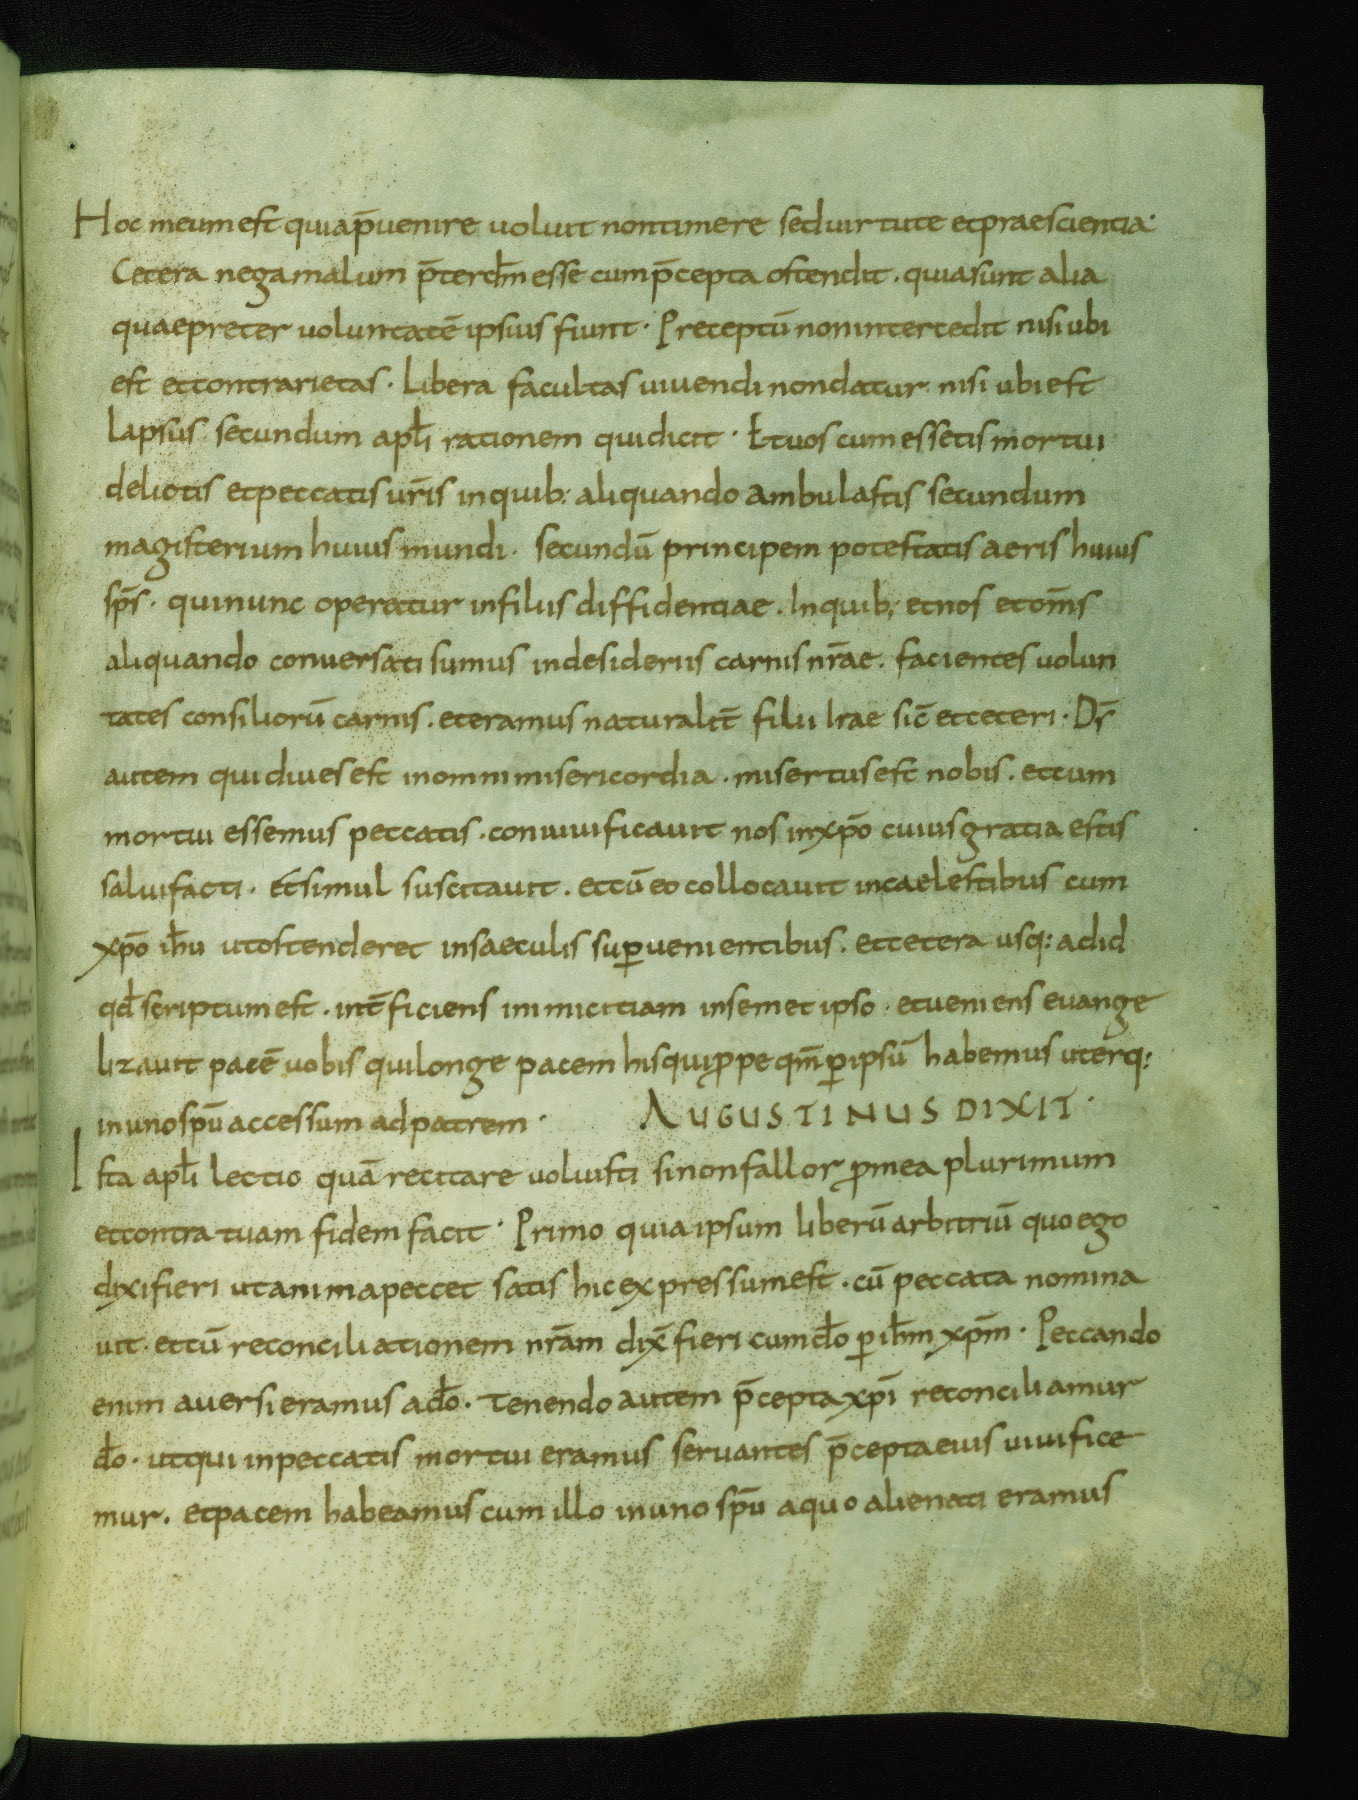 Hoc meum est quia p̄uenire uoluit non timere sed uirtute et praescientia·
Cetera nega malum p̄ter dm̄ esse cum p̄cepta ostendit· quia sunt alia
quae preter uoluntatē ipsius fiunt· Preceptū non intercedit nisi ubi
est et contrarietas· Libera facultas uiuendi non datur nisi ubi est
Lapsus secundum apłi rationem qui dicit· Et uos cum essetis mortui
delictis et peccatis ur̄is in quib: aliquando ambulastis secundum
magisterium huius mundi· secundū principem potestatis aeris huius
sp̄s· qui nunc operatur in filiis diffidentiae· In quib; et nos et om̄s
aliquando conuersati sumus in desideriis carnis nr̄ae· facientes uolun
tates consiliorū carnis· et eramus naturalit̄ filii irae sic̄ et ceteri· Ds̄
autem qui diues est in omni misericordia· misertus est nobis· et cum
mortui essemus peccatis· conuiuificauit nos in xp̄o cuius gratia estis
salui facti· Et simul suscitauit· et cū eo collocauit in caelestibus cum
xp̄o ih̄u ut ostenderet in saeculis suꝑuenientibus· et cetera usq: ad id
qđ scriptum est· int̄ficiens inimicitiam in semet ipso· et ueniens euange
lizauit pacē uobis qui longe pacem his qui ꝓpe qm̄ ꝑ ipsū habemus uterq:
in uno sp̄u accessum ad patrem· AUGUSTINUS DIXIT·
Ista apłi lectio quā recitare uoluisti si non fallor ꝓ mea plurimum
et contra tuam fidem facit· Primo quia ipsum liberū arbitriū quo ego
dixi fieri ut anima peccet satis hic expressum est· cū peccata nomina
uit· et cū reconciliationem nr̄am dix̄ fieri cum do̅ ꝑ ih̄m xp̄m· Peccando
enim auersi eramus a do̅· Tenendo autem p̄cepta xp̄i reconciliamur
do̅· ut qui in peccatis mortui eramus seruantes p̄cepta eius uiuifice
mur· et pacem habeamus cum illo in uno sp̄u a quo alienati eramus